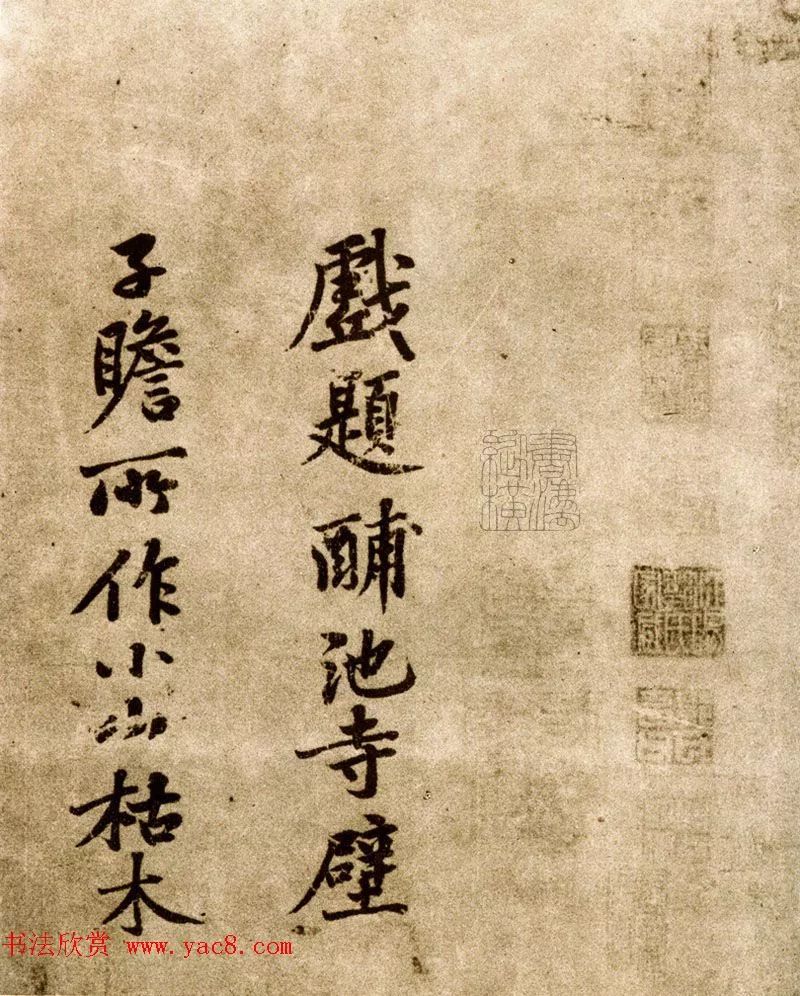 戲題酺池寺壁
子瞻所作小山枯木
书法欣赏 www.yac8.com